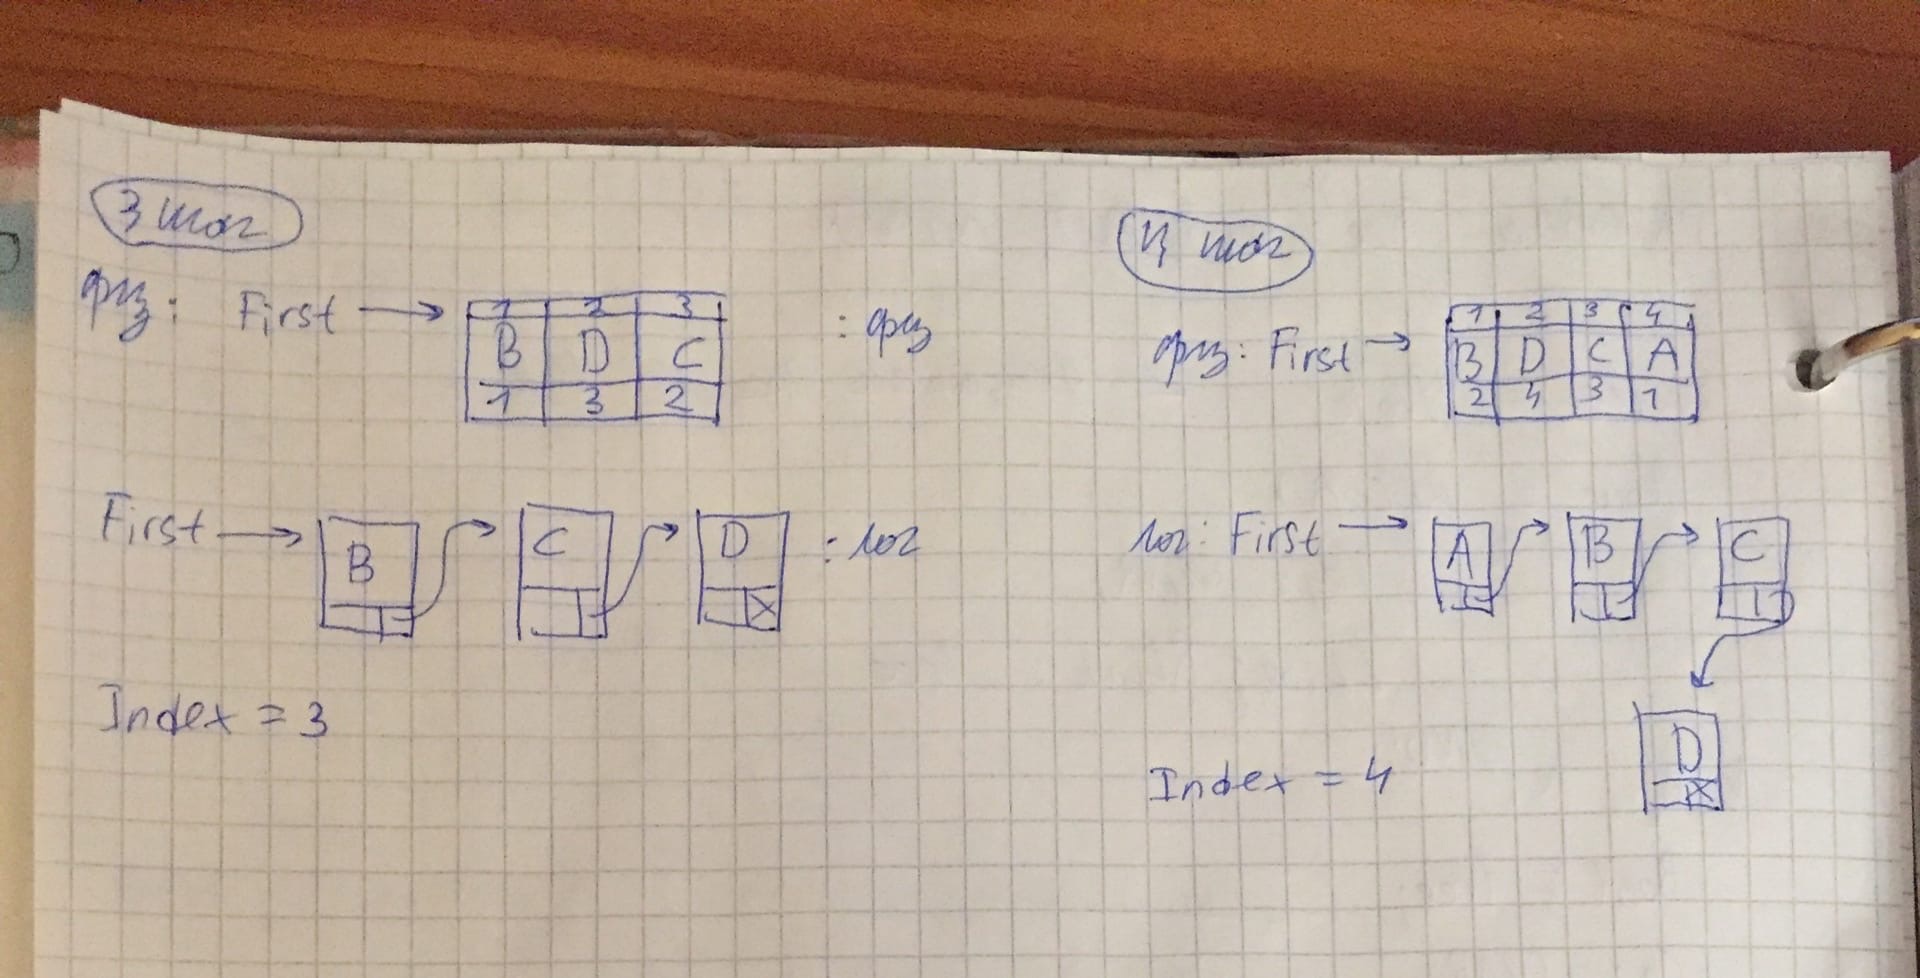 3 шаг
физ: First →
1 2 3
B D C
1 3 2
: физ
First → B C D : лог
Index = 3
4 шаг
физ: First →
1 2 3 4
B D C A
2 4 3 1
лог: First → A B C
D
Index = 4